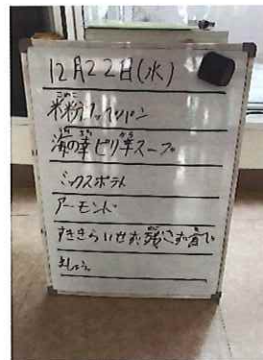 12月22日(水)
米粉
こめこ
海の幸ピリ辛スープ
ミックスポテト
アーモンド
すききらいせず残さず食べ
ましょう